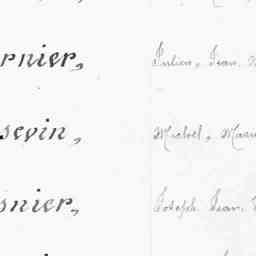 rnier, Julien, Jean.
sevin, Michel, Mari
snier, Joseph Jean.